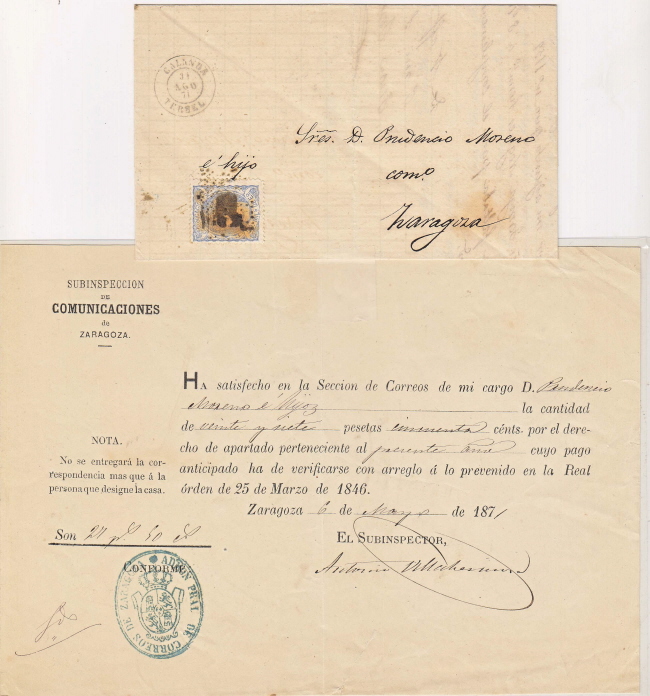 CALANDA
TERUEL
Sres. D. Prudencio Moreno
é hijo
comº
Zaragoza
SUBINSPECCION
DE
COMUNICACIONES
de
ZARAGOZA.
HA satisfecho en la Seccion de Correos de mi cargo D. Prudencio
Moreno é Hijos la cantidad
de veinte y siete pesetas cincuenta cénts. por el dere-
cho de apartado perteneciente al presente año cuyo pago
anticipado ha de verificarse con arreglo á lo prevenido en la Real
órden de 25 de Marzo de 1846.
NOTA.
No se entregará la cor-
respondencia mas que á la
persona que designe la casa.
Zaragoza 6 de Mayo de 1871
EL SUBINSPECTOR,
Antonio
Son 27 50
CONFORME
ADMON PRAL DE CORREOS DE ZARAGOZA